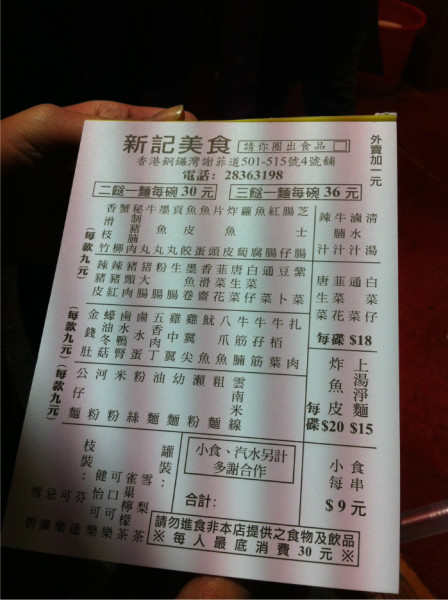 新記美食 請你圈出食品
香港銅鑼灣謝菲道501-515號4號舖
電話: 28363198
外賣加一元
二餸一麵每碗 30 元
三餸一麵每碗 36 元
(每款九元)
香滑枝竹
蟹柳
秘制豬腩肉
牛丸
墨丸
貢丸
魚皮餃
魚蛋
片頭
炸魚皮
蘿蔔
魚腐
紅腸
腸仔
芝士腸
辣汁
牛腩汁
滷水汁
清湯
辣豬皮
辣豬紅
豬頸肉
豬大腸
粉腸
生腸
墨魚卷
香滑齋
韮菜花
唐生菜
白菜仔
通菜
豆卜
紫菜
唐生菜
韮菜花
通菜
白菜仔
每碟 $18
(每款九元)
金錢肚
蠔油冬菇
鹵水鴨腎
鹵水蛋
五香肉丁
雞中翼
雞翼尖
魷魚
八爪魚
牛腩
牛筋
牛栢葉
扎肉
炸魚皮
每碟 $20
上湯淨麵
$15
(每款九元)
公仔麵
河粉
米粉
粉絲
油麵
幼麵
瀨粉
粗麵
雲南米線
枝裝:
雪碧
忌廉
可樂
芬達
健怡可樂
可口可樂
罐裝:
雀巢檸檬茶
雪梨茶
小食、汽水另計
多謝合作
合計:
小食
每串
$ 9 元
請勿進食非本店提供之食物及飲品
※ 每人最底消費 30 元 ※